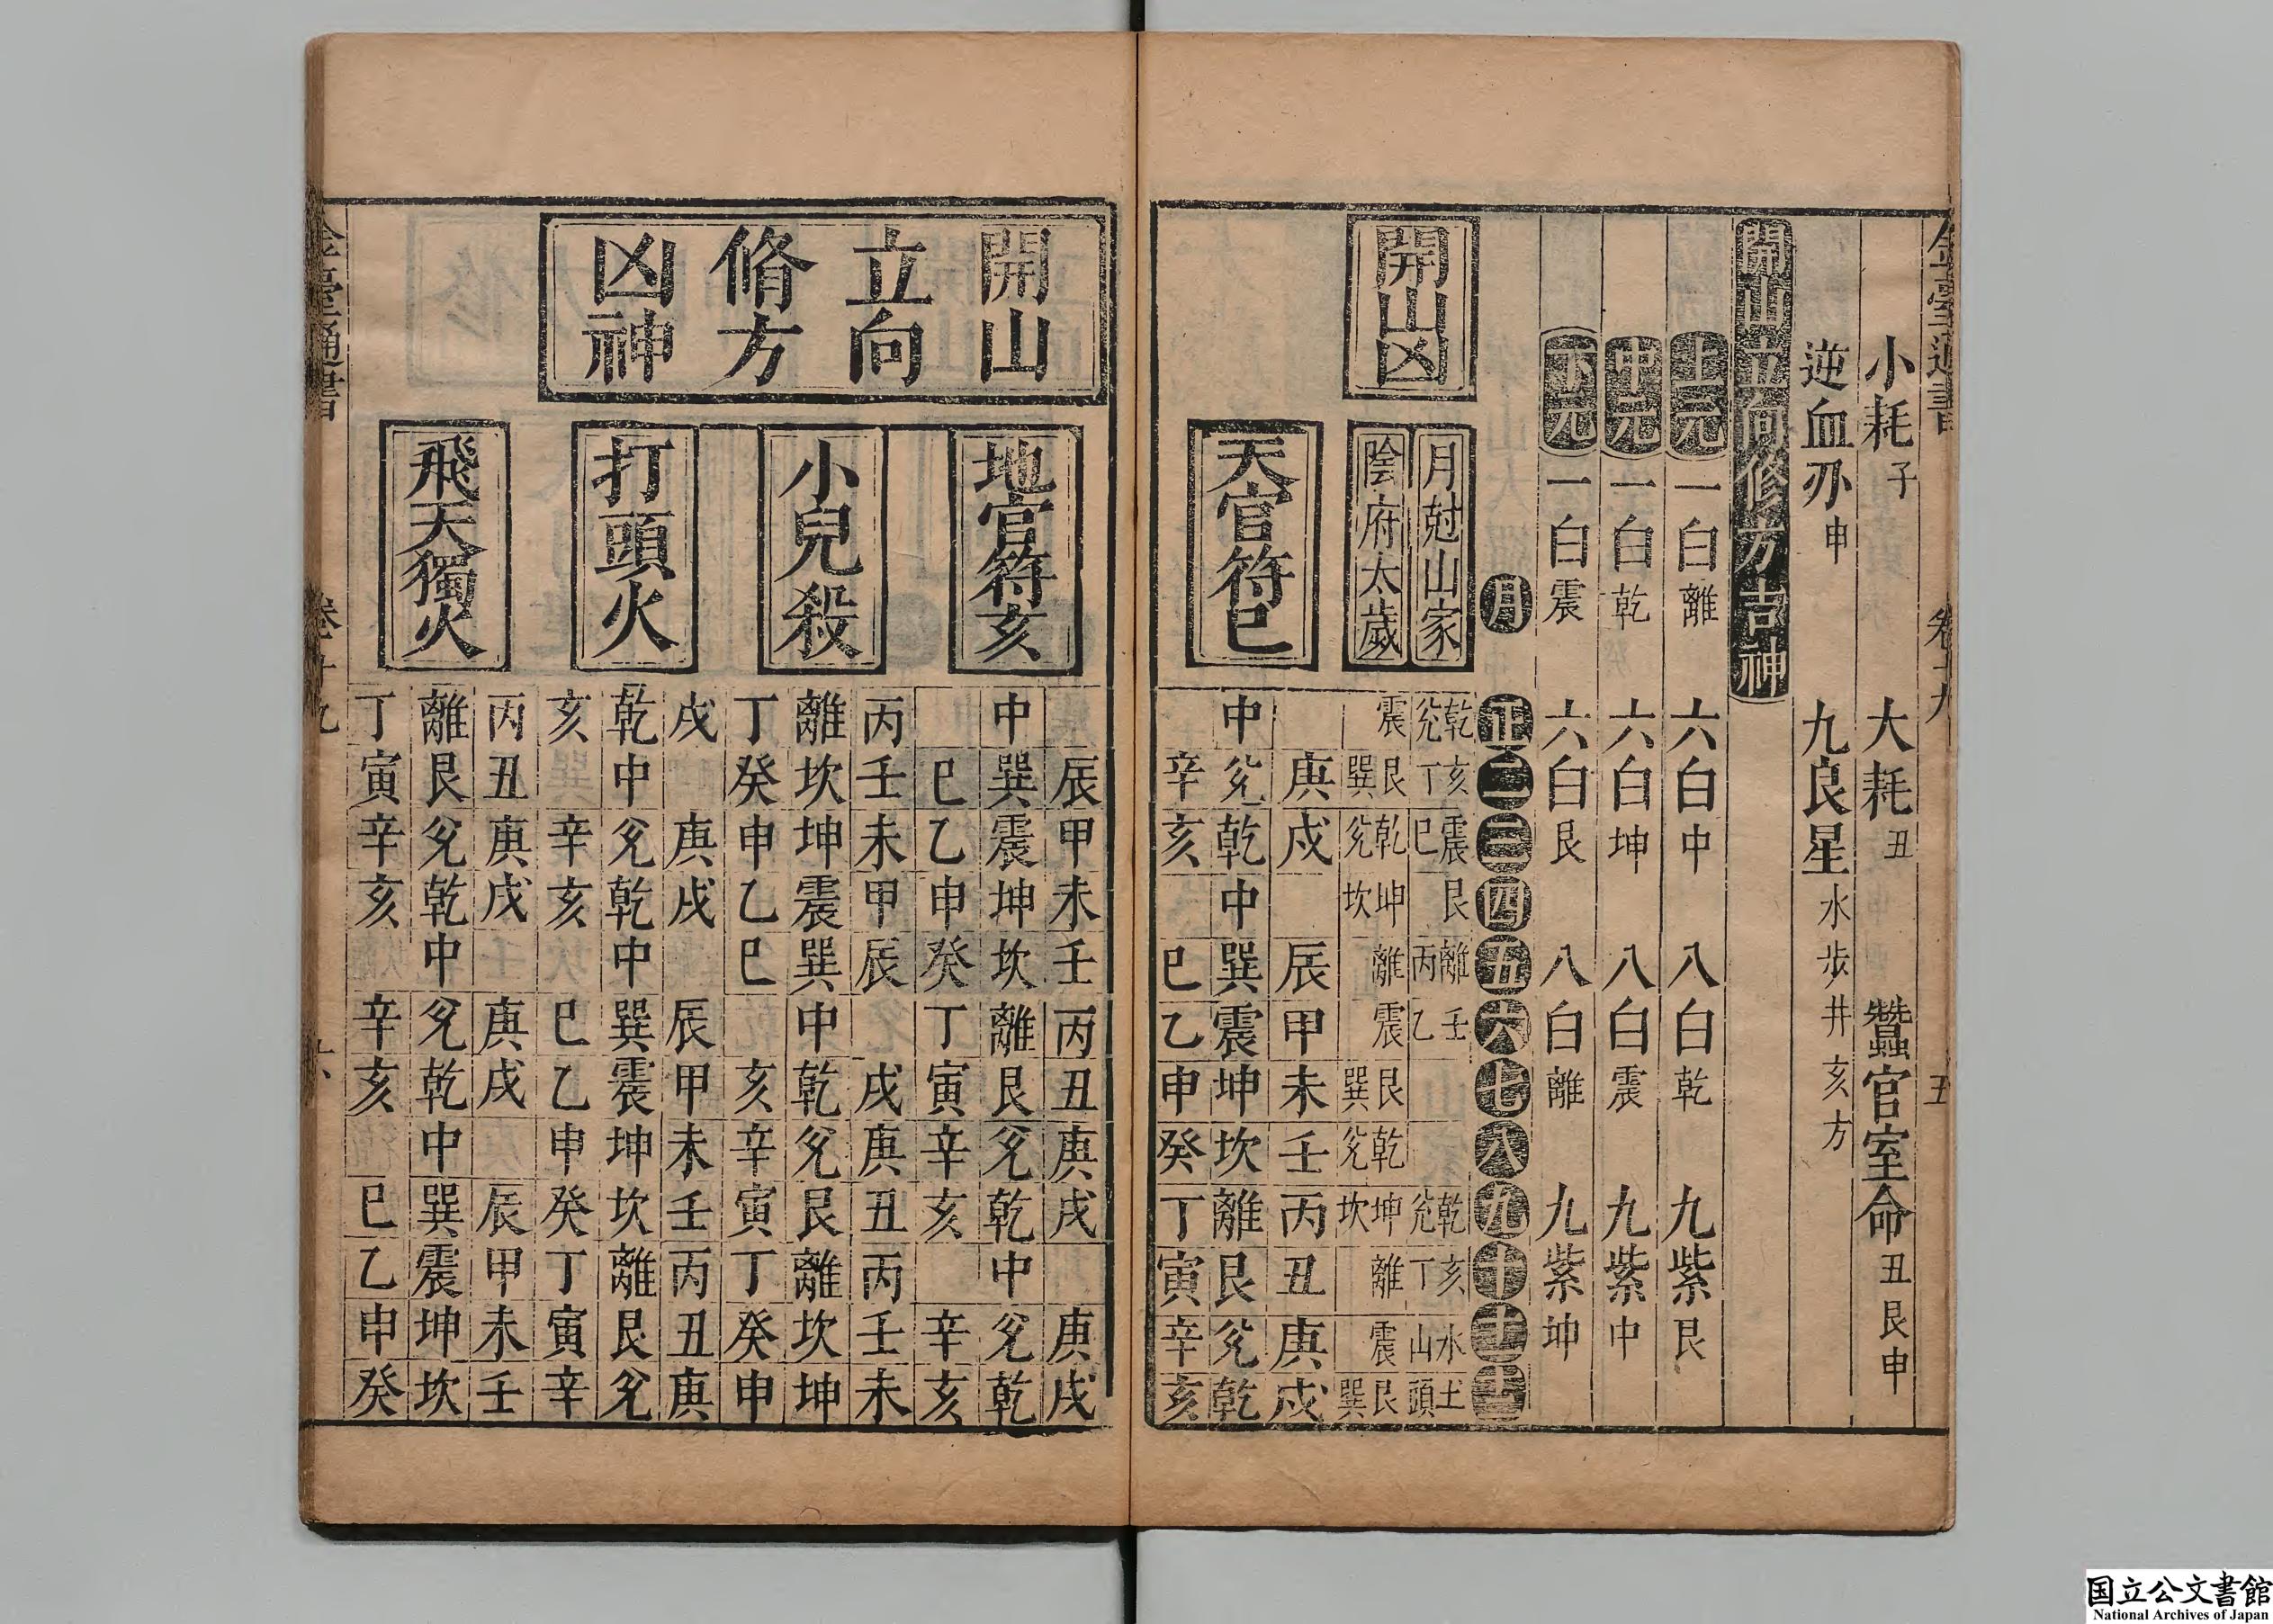 小耗子 大耗丑 蠶官室命丑艮申
逆血刅申 九良星水步井亥方
開山立向修方吉神
上元 一白離 六白中 八白乾 九紫艮
中元 一白乾 六白坤 八白震 九紫中
下元 一白震 六白艮 八白離 九紫坤
月 正 二 三 四 五 六 七 八 九 十 十一 十二
開山凶
月尅山家 乾兊 亥丁 震巳 艮 離丙 壬乙 乾兊 亥丁 水山 土頭
陰府太歲 震 艮巽 乾兊 坤坎 離 震 艮巽 乾兊 坤坎 離 震 艮巽
天官符巳
庚 戌 辰 甲 未 壬 丙 丑 庚 戌
中 兊 乾 中 巽 震 坤 坎 離 艮 兊 乾
辛 亥 巳 乙 申 癸 丁 寅 辛 亥
開山
立向
脩方
凶神
地官符亥
辰 甲 未 壬 丙 丑 庚 戌 庚 戌
中 巽 震 坤 坎 離 艮 兊 乾 中 兊 乾
巳 乙 申 癸 丁 寅 辛 亥 辛 亥
小兒殺
丙 壬 未 甲 辰 戌 庚 丑 丙 壬 未
離 坎 坤 震 巽 中 乾 兊 艮 離 坎 坤
丁 癸 申 乙 巳 亥 辛 寅 丁 癸 申
打頭火
戌 庚 戌 辰 甲 未 壬 丙 丑 庚
乾 中 兊 乾 中 巽 震 坤 坎 離 艮 兊
亥 辛 亥 巳 乙 申 癸 丁 寅 辛
飛天獨火
丙 丑 庚 戌 庚 戌 辰 甲 未 壬
離 艮 兊 乾 中 兊 乾 中 巽 震 坤 坎
丁 寅 辛 亥 辛 亥 巳 乙 申 癸
通書 卷十九
国立公文書館
National Archives of Japan